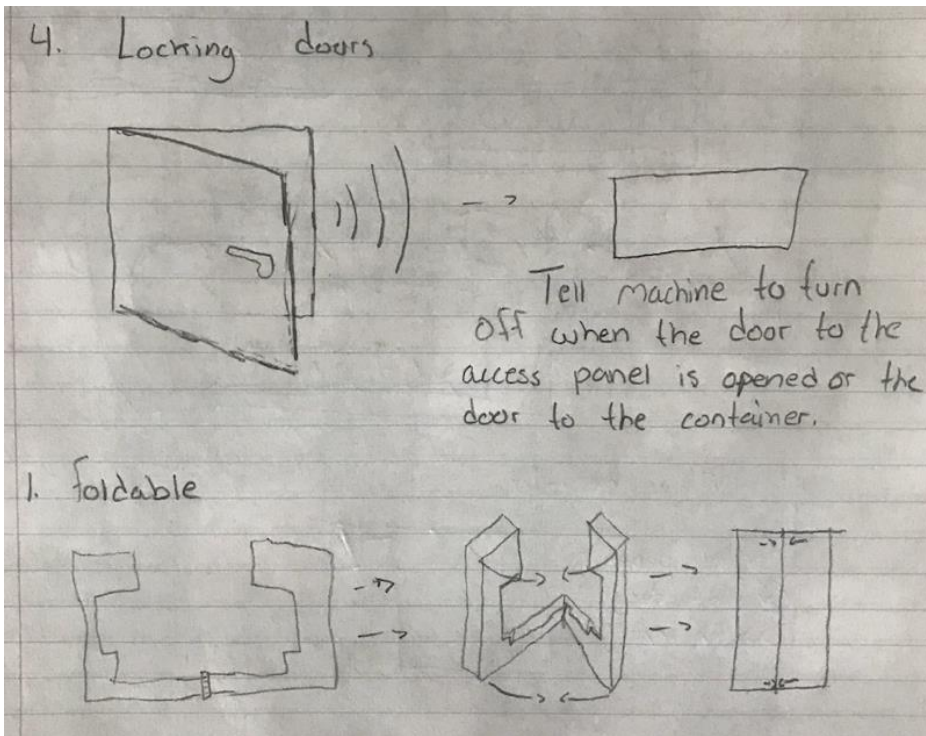 4. Locking doors
Tell machine to turn
off when the door to the
access panel is opened or the
door to the container.
1. foldable